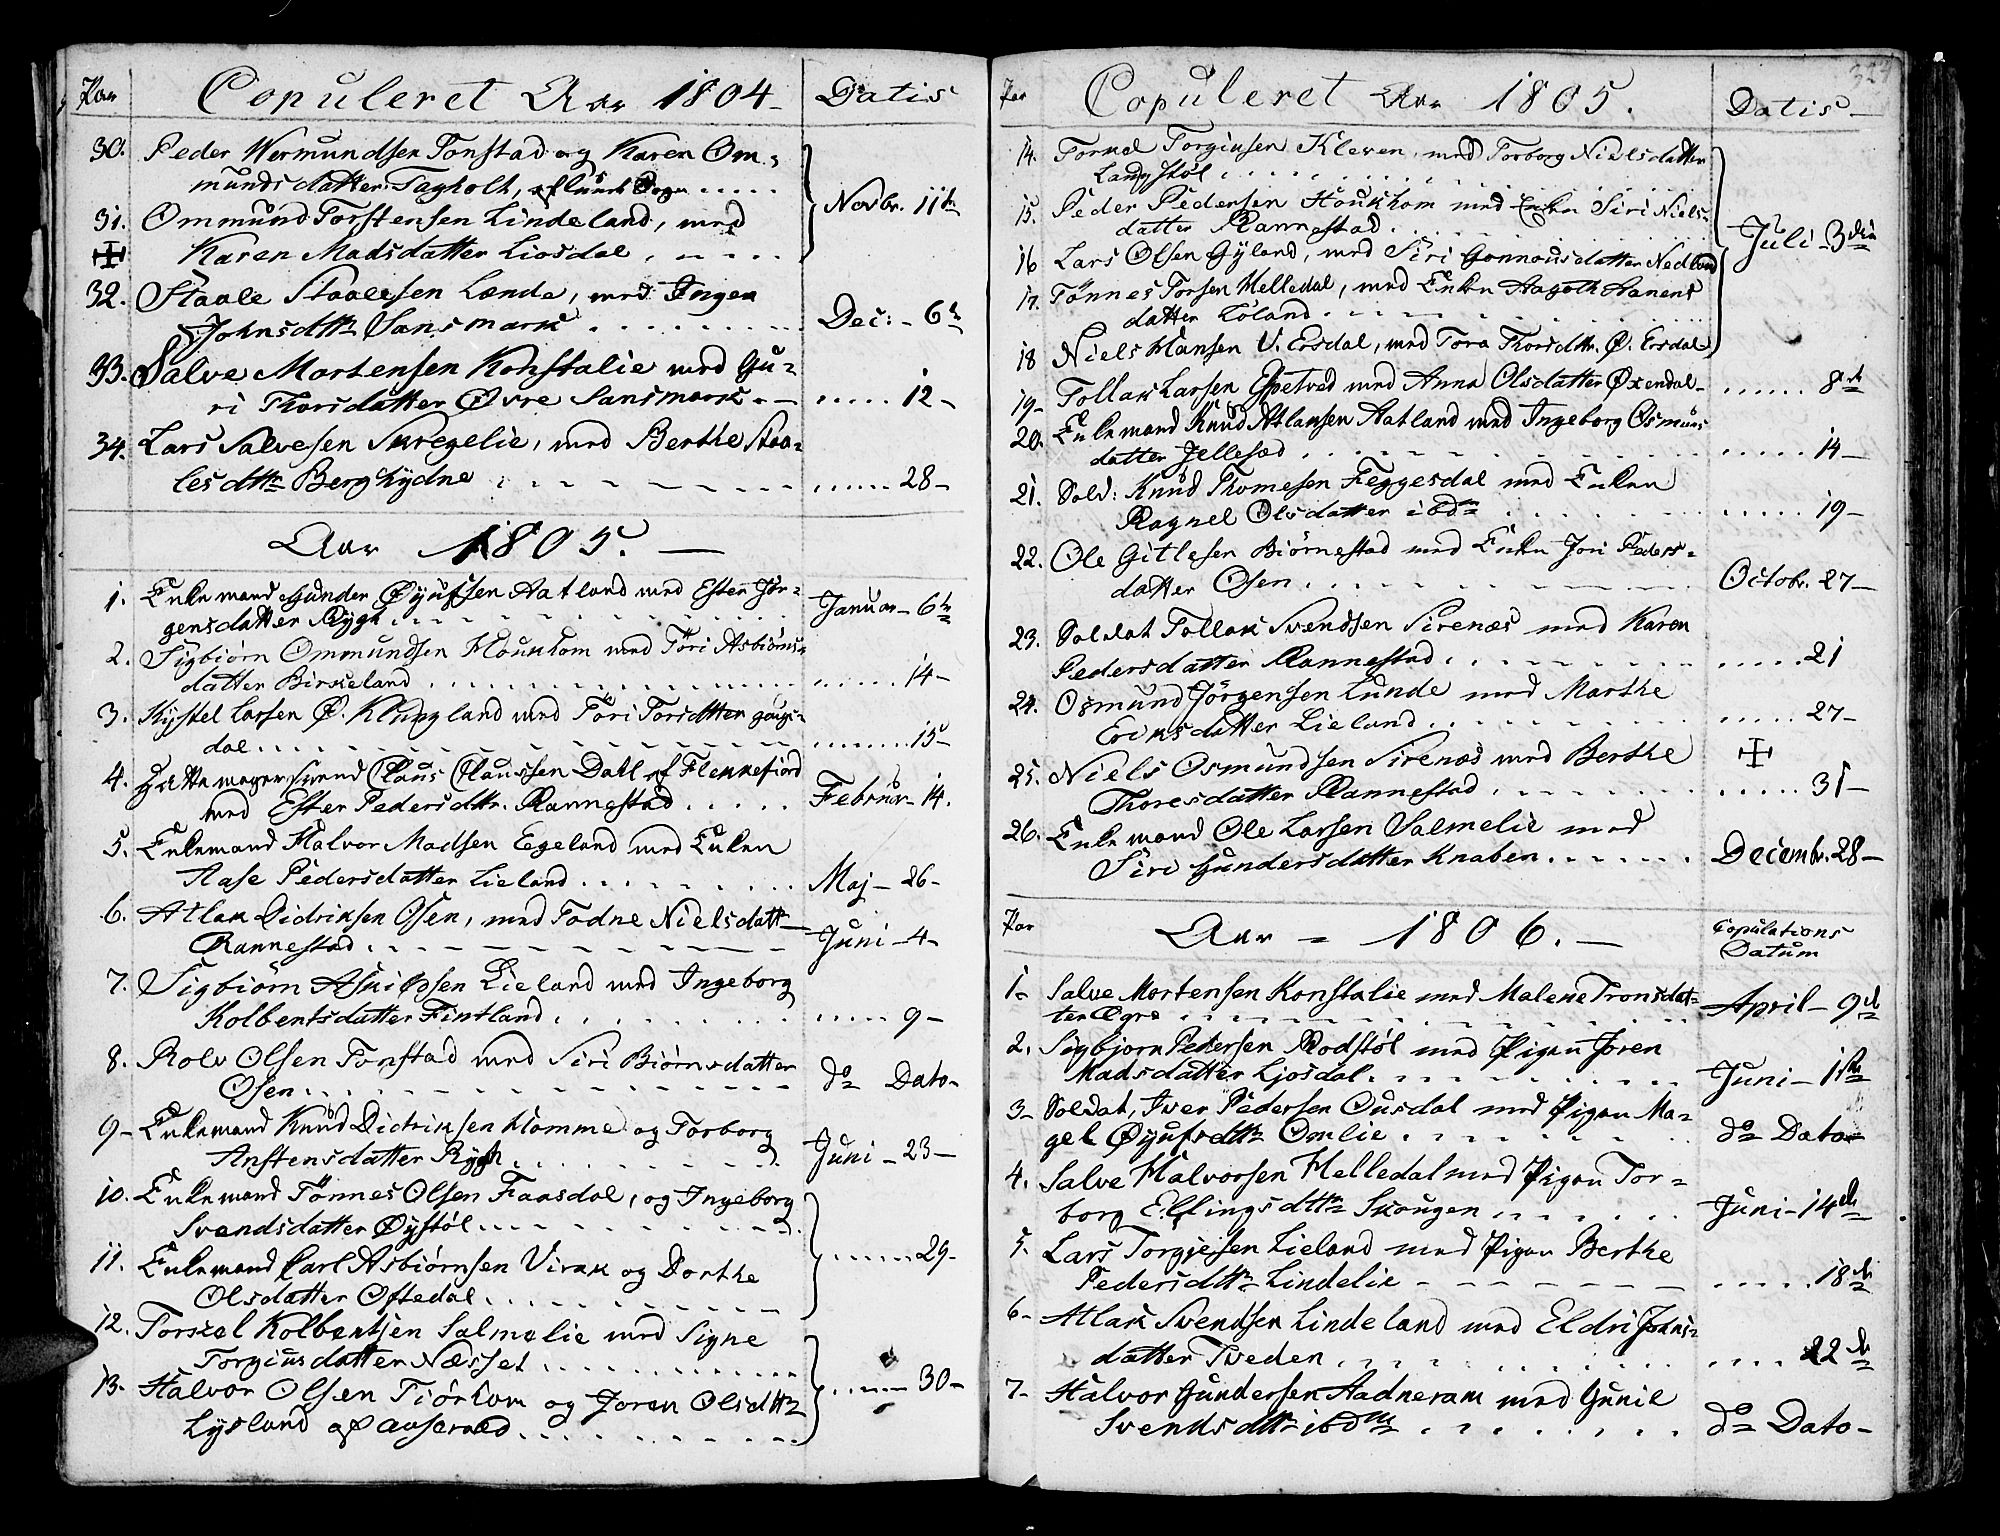 Par Copuleret Aar 1804 Datis
30. Peder Wermundsen Tonstad og Karen Om-
munds datter Tagholt, af Sogn
31. Ommund Torstensen Lindeland, med Novbr. 11te
Karen Madsdatter Liosdal
32. Staale Staalesen Lænde, med Ingen
Johnsdttr Sansmark Dec: - 6te
33. Salve Mortensen Konstalie med Gu-
ri Thorsdatter Øvre Sansmark 12-
34. Lars Salvesen Skregelie, med Berthe Staa-
lesdttr Berghydne 28-
Aar 1805.
1. Enkemand Gunder Øyufsen Aatland med Ester Jør-
gensdatter Rygh Januar - 6te
2. Sigbiørn Ommundsen Houkhom med Töri Asbiörns-
datter Birkeland 14-
3. Kistel Larsen Ø. Klungland med Töri Torsdatter
dal 15-
4. Hattemagersvend Claus Claussen Dahl af Flekkefiord
med Ester Pedersdttr. Rannestad Februar- 14.
5. Enkemand Halvor Madsen Eegeland med Enken
Aase Pedersdatter Lieland Maj - 26-
6. Atlak Didriksen Osen, med Todne Nielsdatt
Rannestad Juni - 4-
7. Sigbiörn Lieland med Ingeborg
Kolbentsdatter Fintland 9-
8. Rolv Olsen Tonstad med Siri Biörnsdatter
Osen do Dato-
9- Enkemand Knud Didriksen Homme og Torborg
Anstensdatter Rygh Juni - 23-
10. Enkemand Tönnes Olsen Faasdal, og Ingeborg
Svendsdatter Øystöl
11. Enkemand Carl Asbiörnsen Virak og Dorthe 29-
Olsdatter Oftedal
12. Torkel Kolbentsen Salmelie med Signe
Torgiusdatter Næsset
13. Halvor Olsen Tiörhom og Joren Olsdttr 30-
Lysland af
Par Copuleret Aar 1805. Datis
14. Torgiusen Kleven, med Torborg Nielsdatter
Langstöl
15. Peder Pedersen Houkhom med Enken Siri Niels-
datter Rannestad Juli - 3die
16 Lars Olsen Gyland, med Siri Gonnousdatter Nedland
17. Tönnes Torsen Helledal, med Enken Aagoth Aanens
datter Löland
18 Niels Hansen U. Ersdal, med Tora Thorsdttr. Ø. Ersdal
19- Tollak Larsen Espetved med Anna Olsdatter Øxendal- 8de
20. Enkemand Knud Atlaksen Aatland med Ingeborg Osmuns
datter Jellesad 14-
21. Sold: Knud Thomesen Feggesdal med Enken
Ragnel Olsdatter ibdm 19-
22. Ole Gitlesen Biörnestad med Enken Jori Peders-
datter Osen Octobr. 27-
23. Soldat Tollak Svendsen Sirenæs med Karen
Pedersdatter Rannestad 21
24. Osmund Jörgensen Lunde med Marthe
Eriksdatter Lieland 27-
25. Niels Osmundsen Sirenæs med Berthe
Thoresdatter Rannestad 31-
26. Enkemand Ole Larsen Salmelie med
Siri Gundersdatter Knaben Decembr. 28-
Par Aar - 1806. - Copulations
Datum
1- Salve Mortensen Konstalie med Malene Tronsdat-
ter Egra April - 9de
2. Sigbjorn Pedersen Rodstöl med Pigen Joren
Madsdatter Ljosdal Juni - 1ste
3- Soldat, Iver Pedersen Ousdal med Pigen Ma-
gel Øyufsdttr Omlie do Dato-
4. Salve Halvorsen Helledal med Pigen Tor-
borg Ellingsdttr Skougen Juni - 14de
5. Lars Torgjesen Lieland med Pigen Berthe
Pedersdttr Lindelie 18de
6- Atlak Svendsen Lindeland med Eldri Johns-
datter Tveden 22de
7- Halvor Gundersen Aadneram med Gunil
Svendsdttr ibdm do Dato-